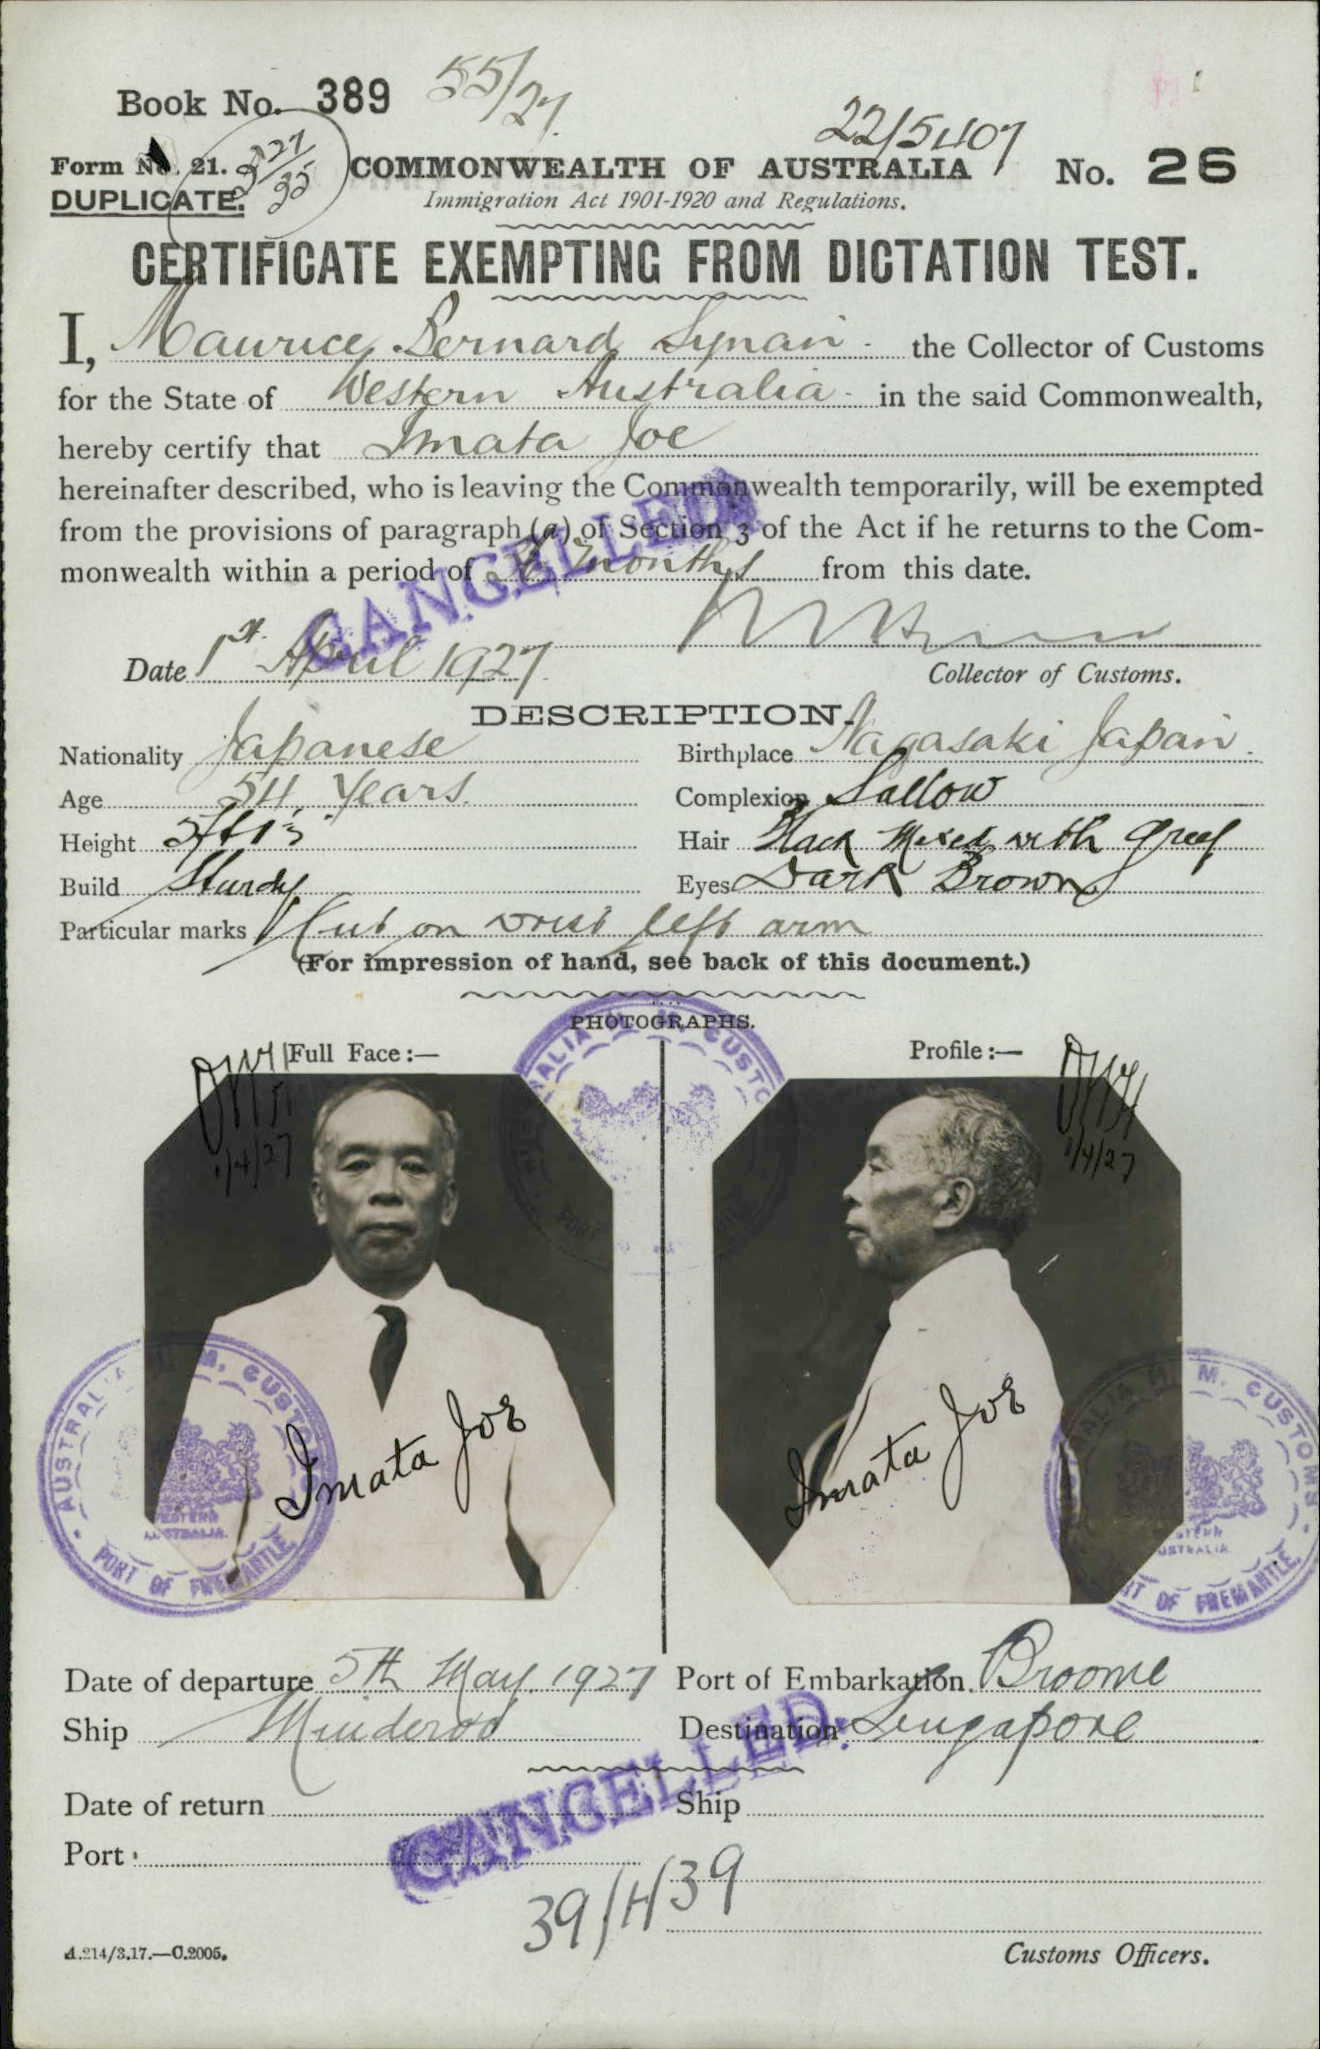 Book No. 389 55/27.
22/5407
Form No. 21. 327/35 COMMONWEALTH OF AUSTRALIA No. 26
DUPLICATE. Immigration Act 1901-1920 and Regulations.
CERTIFICATE EXEMPTING FROM DICTATION TEST.
I, Maurice Bernard Synan the Collector of Customs
for the State of Western Australia in the said Commonwealth,
hereby certify that Imata Joe
hereinafter described, who is leaving the Commonwealth temporarily, will be exempted
from the provisions of paragraph (a) of Section 3 of the Act if he returns to the Com-
monwealth within a period of months from this date.
CANCELLED
Date 1st April 1927.
Collector of Customs.
DESCRIPTION.
Nationality Japanese Birthplace Nagasaki Japan.
Age 54 Years. Complexion Sallow
Height 5ft 1¾" Hair Black Mixed with Grey
Build Sturdy Eyes Dark Brown
Particular marks Cut on wrist left arm
(For impression of hand, see back of this document.)
PHOTOGRAPHS.
Full Face:— Profile:—
1/4/27 1/4/27
AUSTRALIA H. M. CUSTOMS
Imata Joe Imata Joe
AUSTRALIA H. M. CUSTOMS WESTERN AUSTRALIA. PORT OF FREMANTLE.
AUSTRALIA H. M. CUSTOMS WESTERN AUSTRALIA PORT OF FREMANTLE.
Date of departure 5th May 1927 Port of Embarkation Broome
Ship Minderoo Destination Singapore
CANCELLED.
Date of return Ship
Port
39/H/39
A.214/3.17.—C.2005. Customs Officers.